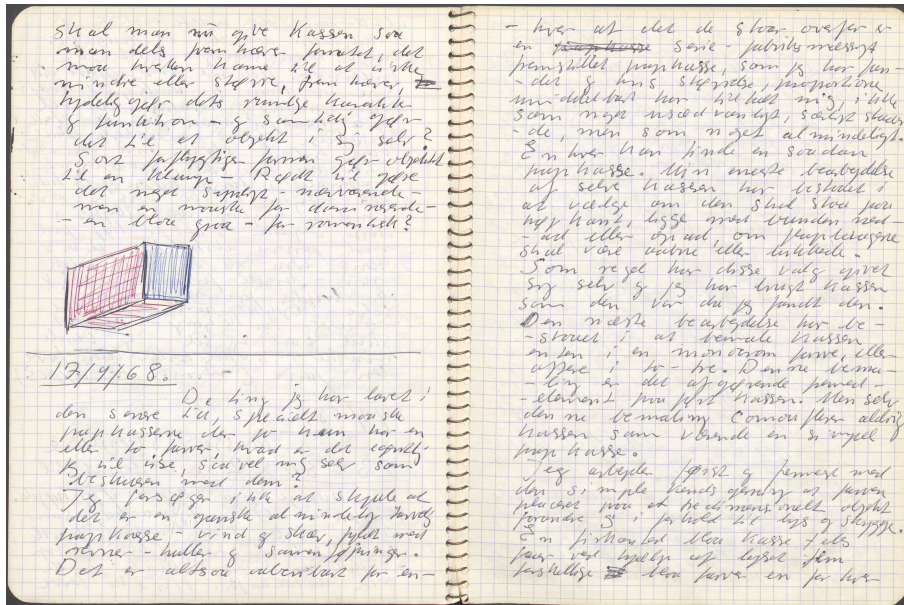 skal man nu give kassen saa
man dels fremhæver formatet, det
maa hverken komme til at virke
mindre eller større, fremhæver,
tydeliggør dets rumlige karakter
og funktion - og samtidig gør
det til et objekt i sig selv?
Sort farve gør objektet
til en klump - Rødt vil gøre
det noget - nærværende -
men er maaske for dominerende -
- en blaa graa - for romantisk?
17/9/68.
De ting jeg har lavet i
den senere tid, specielt maaske
papkasserne der jo kun har en
eller to farver, hvad er det egentlig
jeg vil vise, saavel mig selv som
beskueren med dem?
Jeg forsøger ikke at skjule at
det er en ganske almindelig
papkasse - vind og skæv, fyldt med
revner - huller og sammenføjninger.
Det er altsaa aabenbart for en-
- hver at det de staar overfor er
en papkasse serie - fabriksmæssigt
fremstillet papkasse, som jeg har fun-
- det og hvis størrelse, proportioner
umiddelbart har tiltalt mig, ikke
som noget usædvanligt, særligt
- de, men som noget almindeligt.
Enhver kan finde en saadan
papkasse. Min eneste bearbejdelse
af selve kassen har bestaaet i
at vælge om den skal staa paa
højkant, ligge med bunden ned-
- ad eller opad, om papklapperne
skal være aabne eller lukkede.
Som regel har disse valg givet
sig selv og jeg har brugt kassen
som den var da jeg fandt den.
Den næste bearbejdelse har be-
- staaet i at bemale kassen
enten i en monokrom farve, eller
oftere i to-tre. Denne bema-
- ling er det afgørende fremmed-
- element paaført kassen. Men selv
denne bemaling camouflerer aldrig
kassen som værende en simpel
papkasse.
Jeg arbejder først og fremmest med
den simple kendsgerning at farven
placeret paa et tredimensionalt objekt
forandre sig i forhold til lys og skygge.
En firkantet blaa kasse f.eks
faar ved hjælp af lyset fem
forskellige blaa farver en for hver